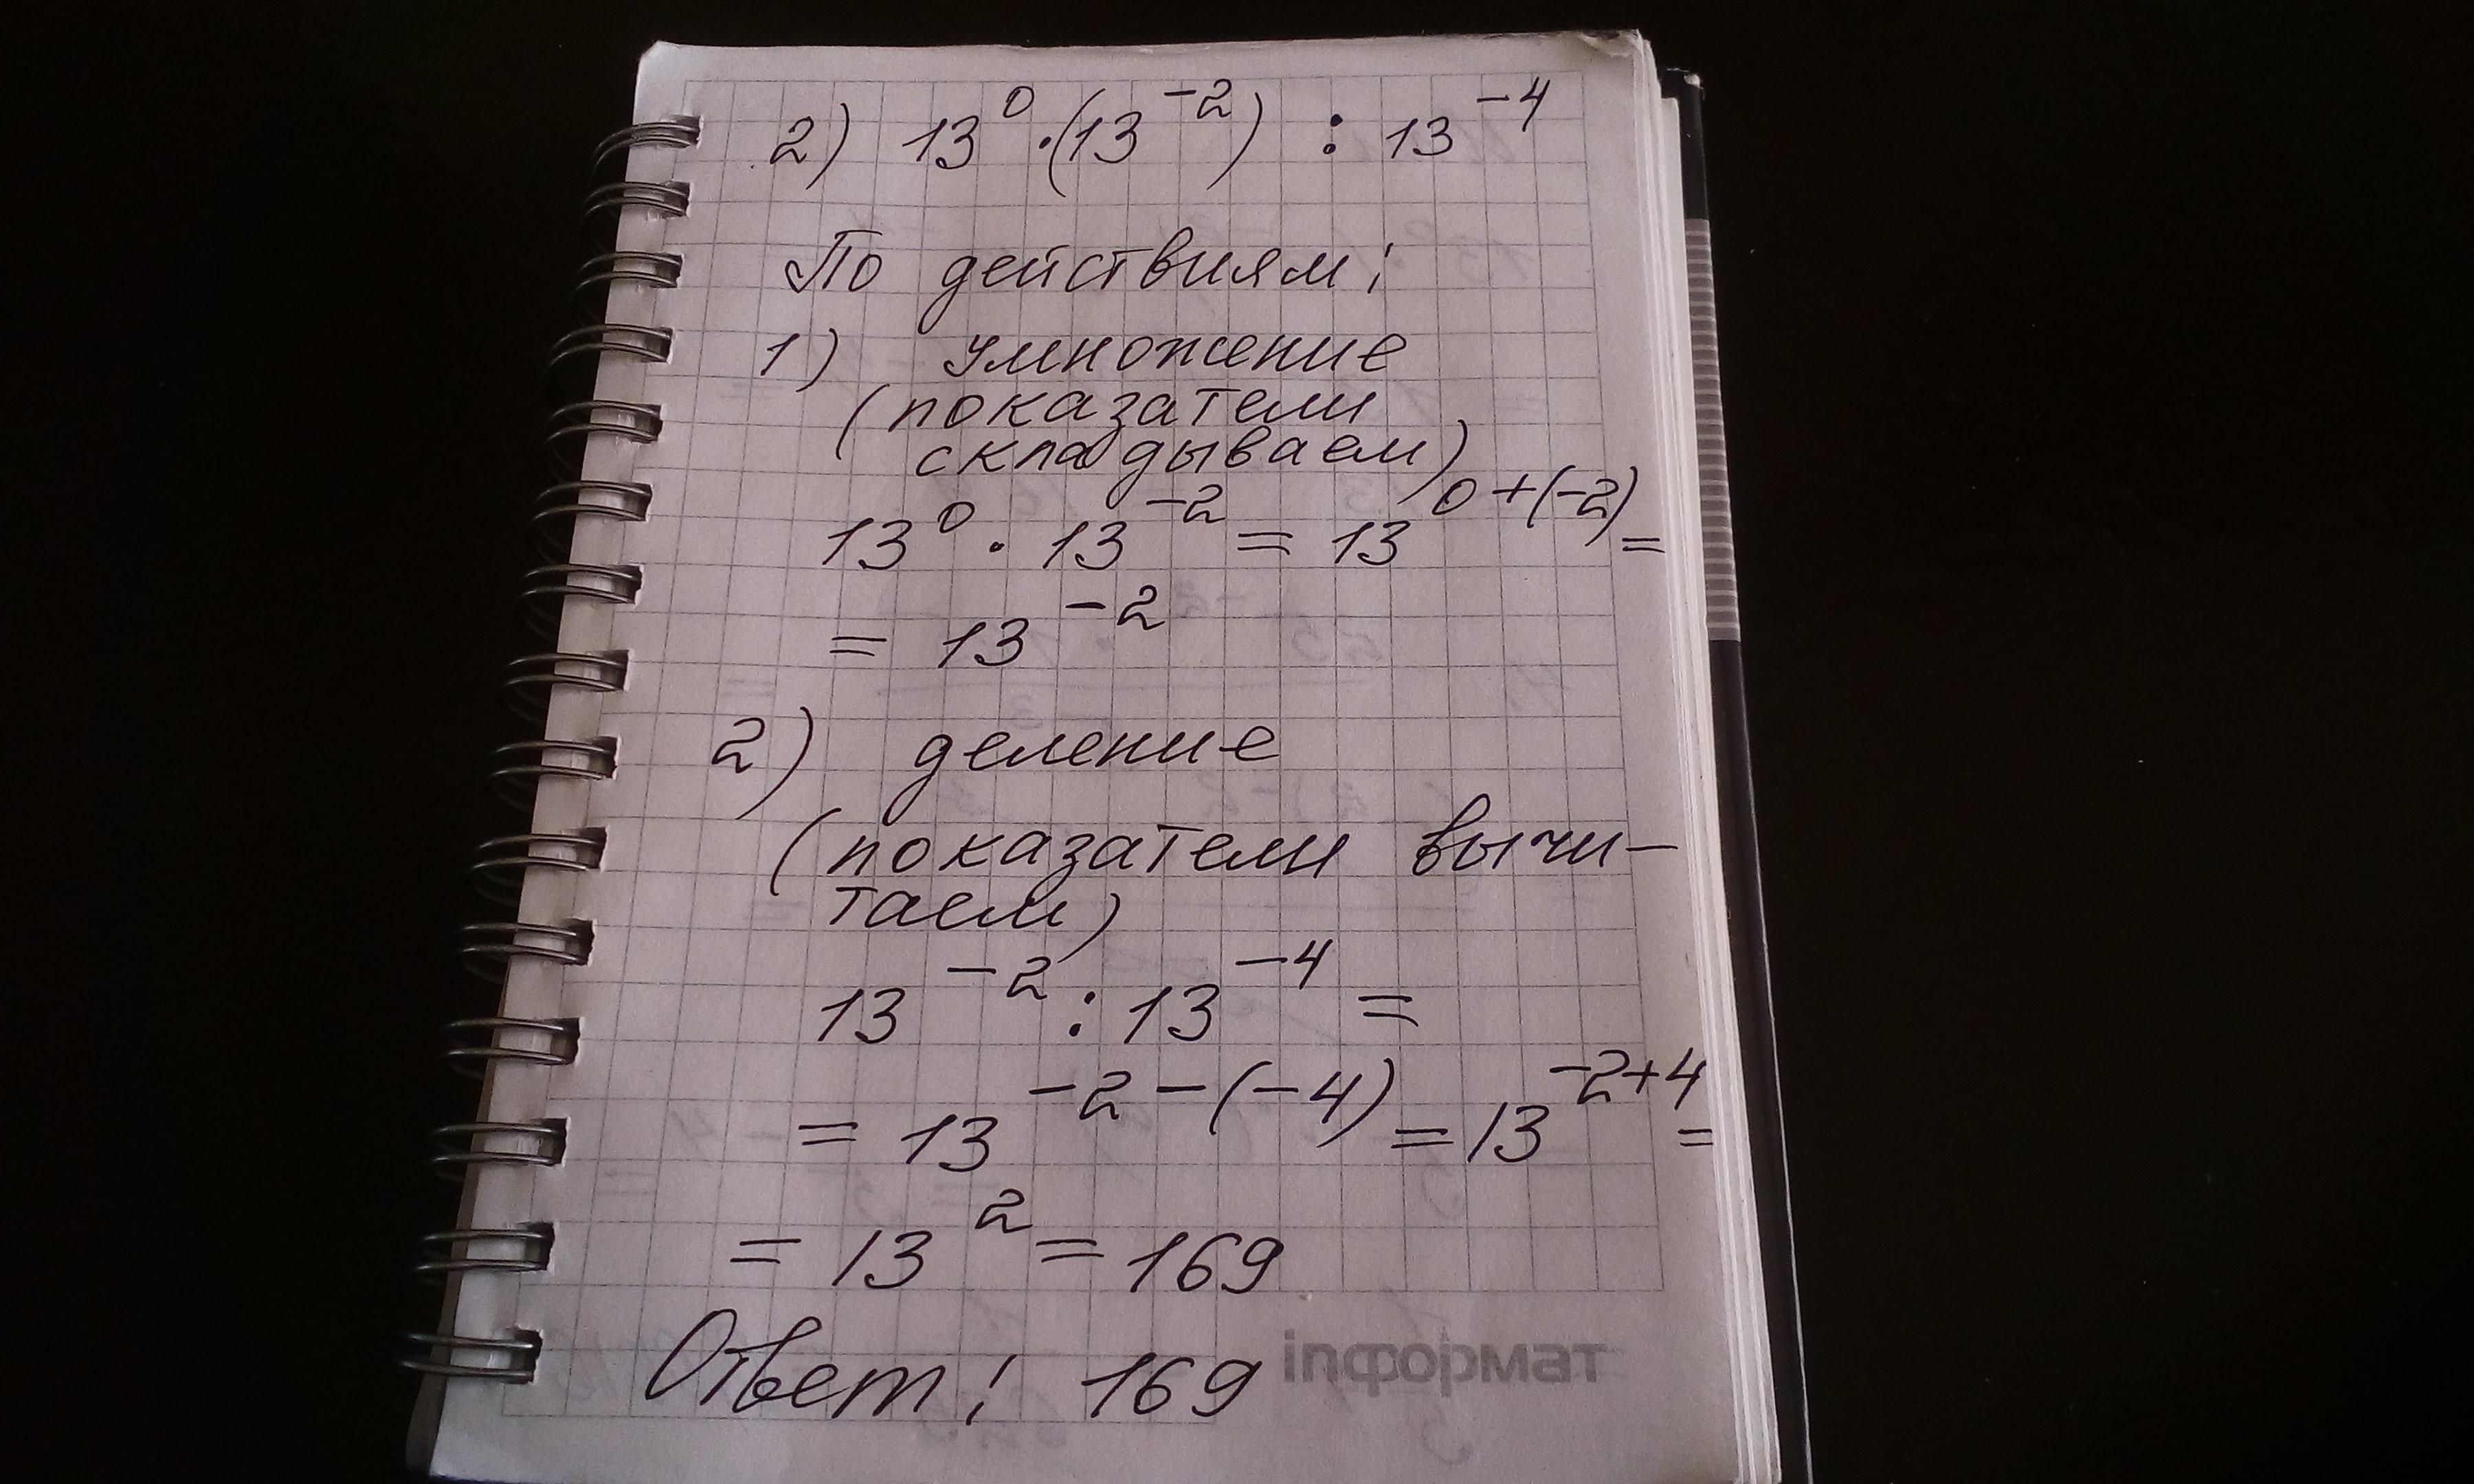 2) 13⁰ · (13⁻²) : 13⁻⁴
По действиям:
1) Умножение
(показатели
складываем)
13⁰ · 13⁻² = 13⁰⁺⁽⁻²⁾ =
= 13⁻²
2) деление
(показатели вычи-
таем)
13⁻² : 13⁻⁴ =
= 13⁻²⁻⁽⁻⁴⁾ = 13⁻²⁺⁴ =
= 13² = 169
Ответ: 169
inформат